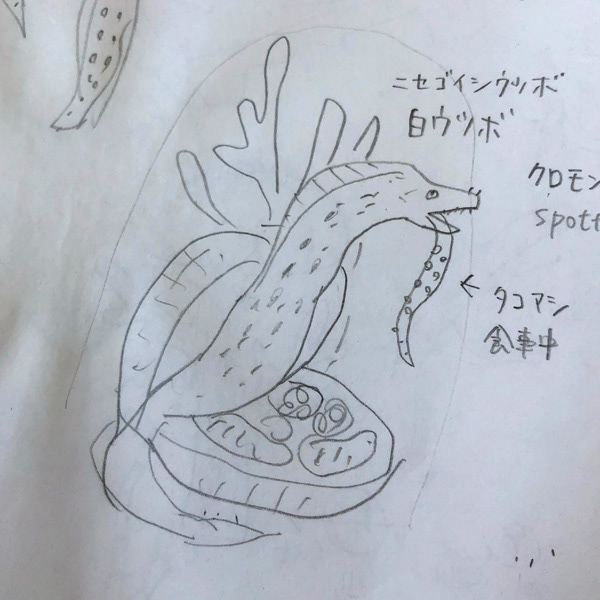 ニセゴイシウツボ
白ウツボ
クロモン
spott
← タコアシ
食事中